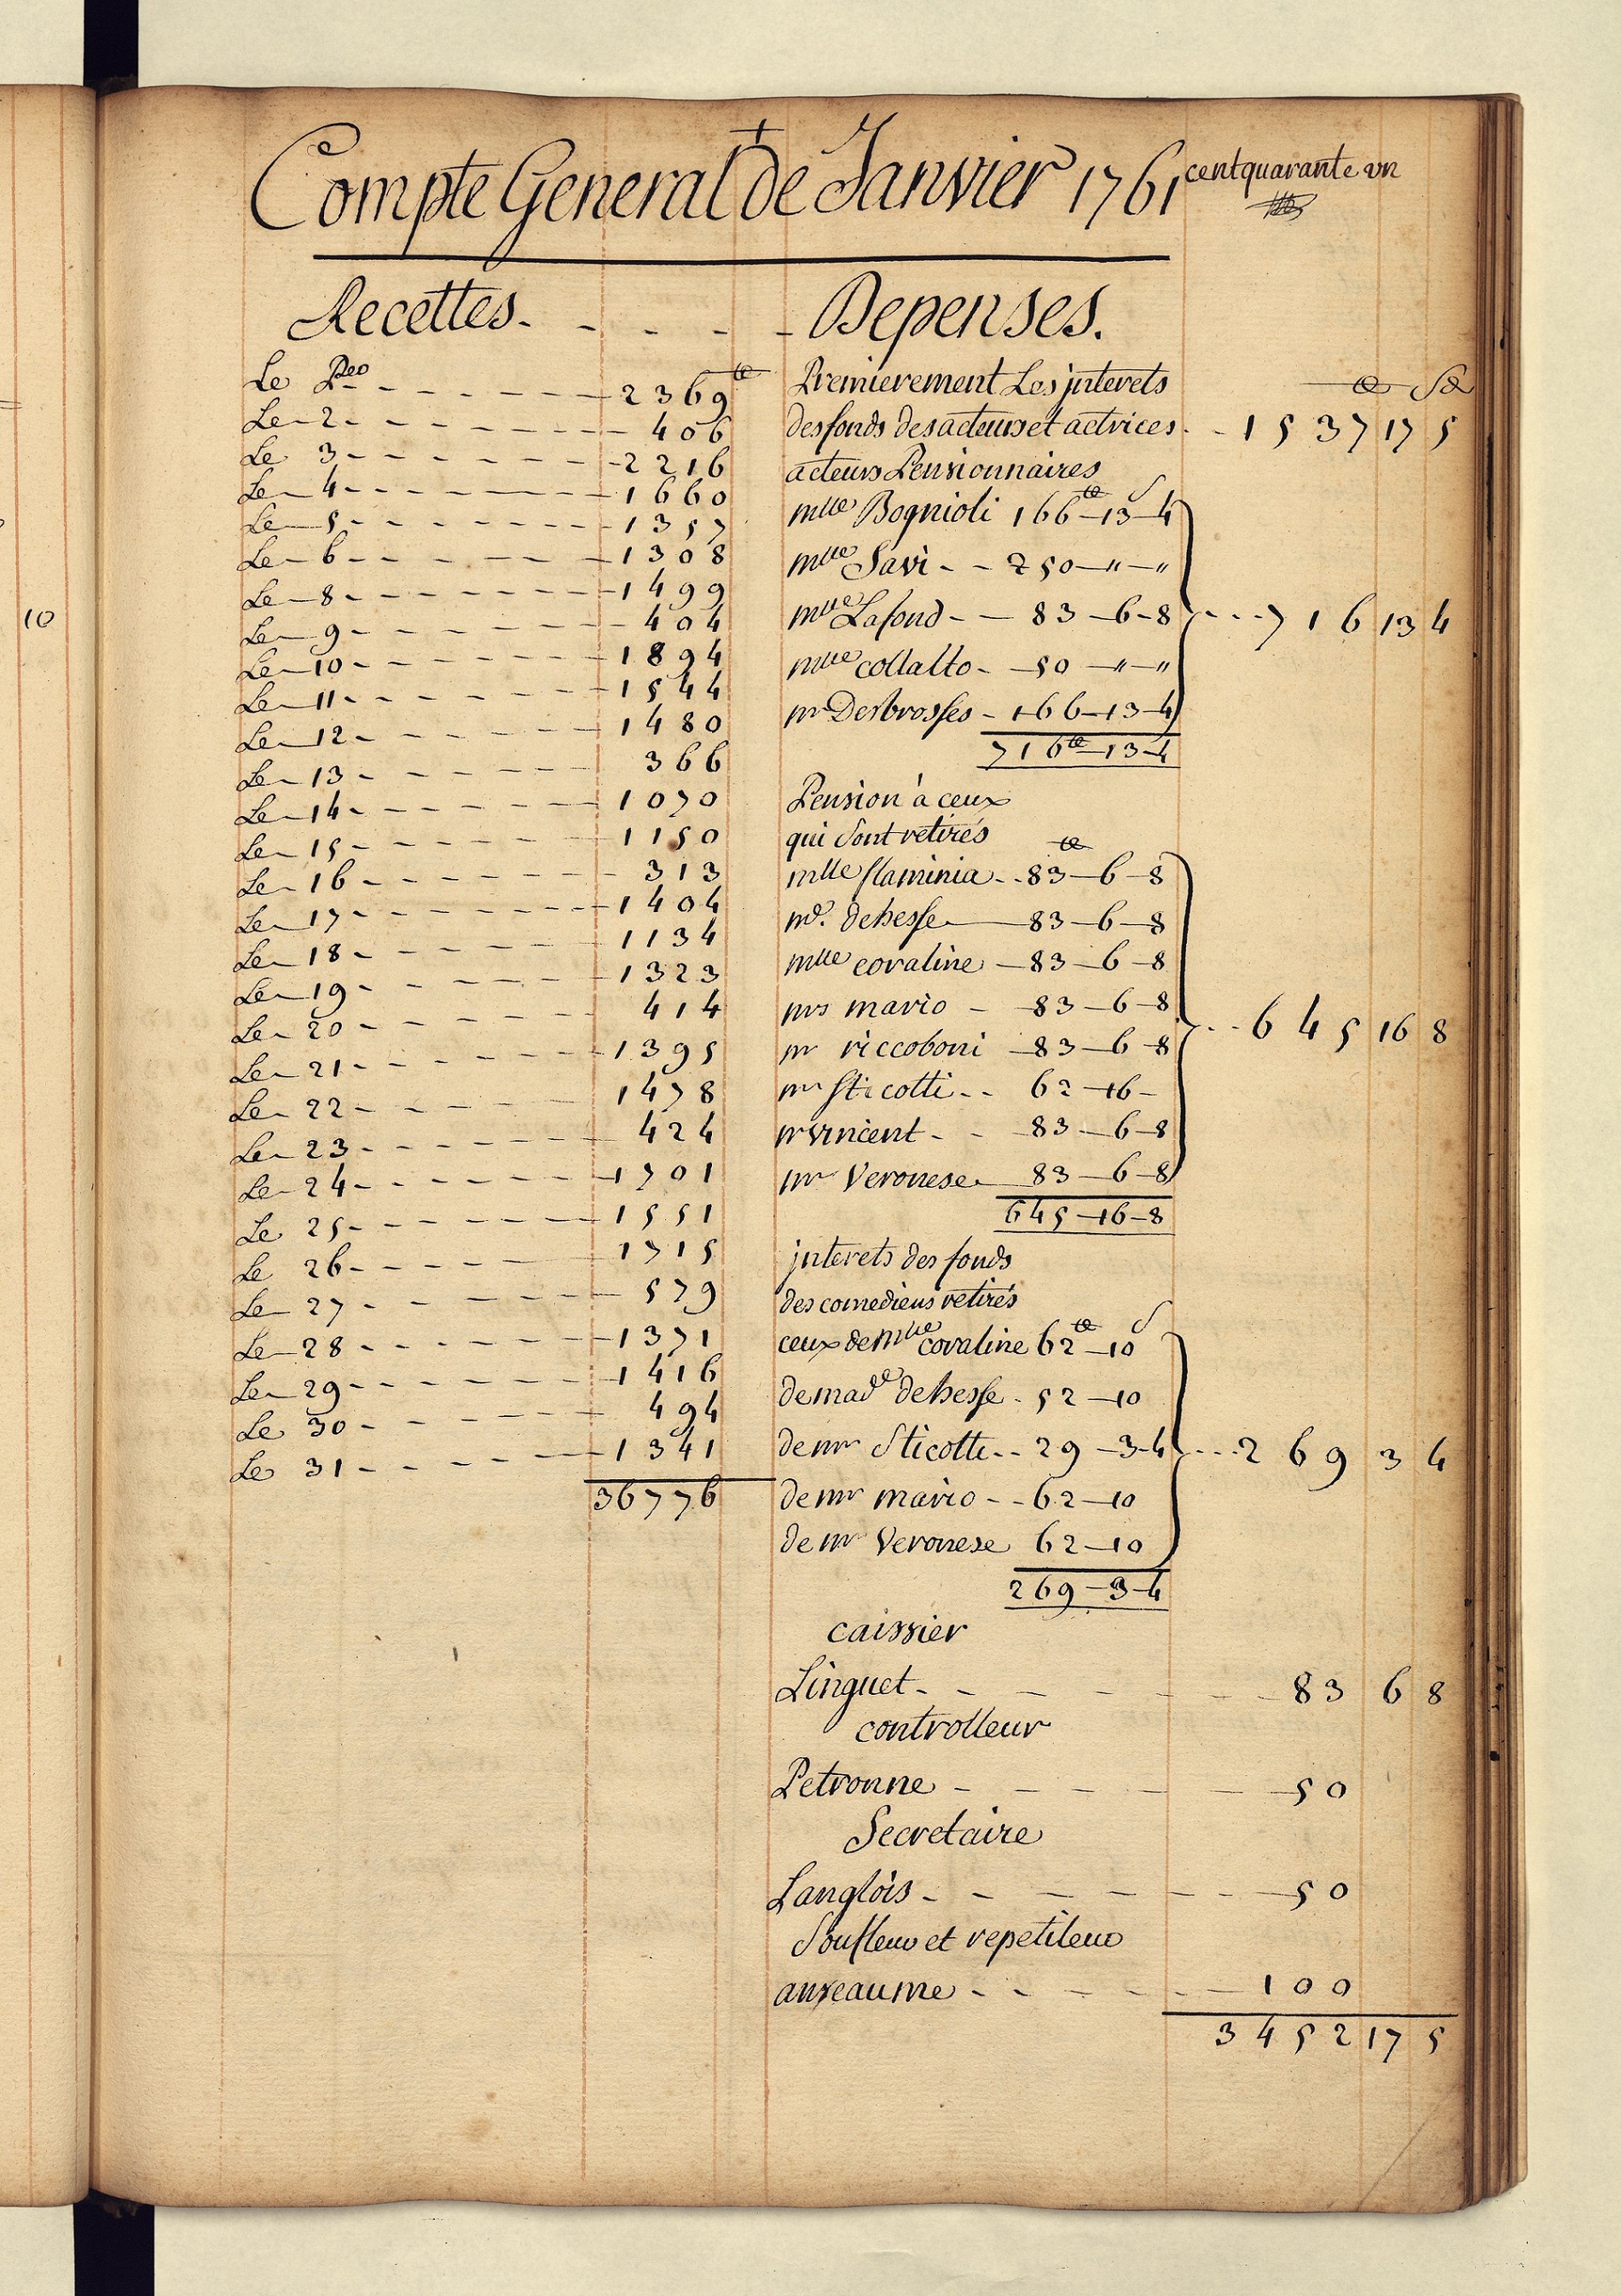 10
Compte General de Janvier 1761 cent quarante un
Recettes - - - - - Depenses.
Le Per - - - - - 2369tt
Le 2 - - - - - 406
Le 3 - - - - - 2216
Le 4 - - - - - 1660
Le 5 - - - - - 1357
Le 6 - - - - - 1308
Le 8 - - - - - 1499
Le 9 - - - - - 404
Le 10 - - - - - 1894
Le 11 - - - - - 1544
Le 12 - - - - - 1480
Le 13 - - - - - 366
Le 14 - - - - - 1070
Le 15 - - - - - 1150
Le 16 - - - - - 313
Le 17 - - - - - 1404
Le 18 - - - - - 1134
Le 19 - - - - - 1323
Le 20 - - - - - 414
Le 21 - - - - - 1395
Le 22 - - - - - 1478
Le 23 - - - - - 424
Le 24 - - - - - 1701
Le 25 - - - - - 1551
Le 26 - - - - - 1715
Le 27 - - - - - 579
Le 28 - - - - - 1371
Le 29 - - - - - 1416
Le 30 - - - - - 494
Le 31 - - - - - 1341
36776
Premierement Les jnterets tt s d
des fonds des acteurs et actrices - - 1537 17 5
acteurs Pensionnaires
mlle Bognioli 166tt - 13s - 4
mlle Savi - - 250 - " - "
mlle Lafond - - 83 - 6 - 8 - - - 716 13 4
mlle collalto - 50 - " - "
mr Desbrosses - 166 - 13 - 4
716tt - 13 - 4
Pension à ceux
qui sont retirés tt
mlle flaminia - - 83 - 6 - 8
md. dehesse - 83 - 6 - 8
mlle coraline - 83 - 6 - 8
mrs mario - 83 - 6 - 8 - - - 645 16 8
mr riccoboni - 83 - 6 - 8
mr Sticotti - - 62 - 16 -
mr vincent - - 83 - 6 - 8
mr Veronese - 83 - 6 - 8
645 - 16 - 8
jnterets des fonds
des comediens retirés
ceux de mlle coraline 62tt - 10s
de made dehesse - 52 - 10
de mr Sticotti - - 29 - 3 - 4 - - - 269 3 4
de mr mario - - 62 - 10
de mr Veronese 62 - 10
269 - 3 - 4
caissier
Linguet - - - - - 83 6 8
controlleur
Petronne - - - - - 50
Secretaire
Langlois - - - - - 50
Soufleur et repetiteur
anseaume - - - - - 100
3452 17 5